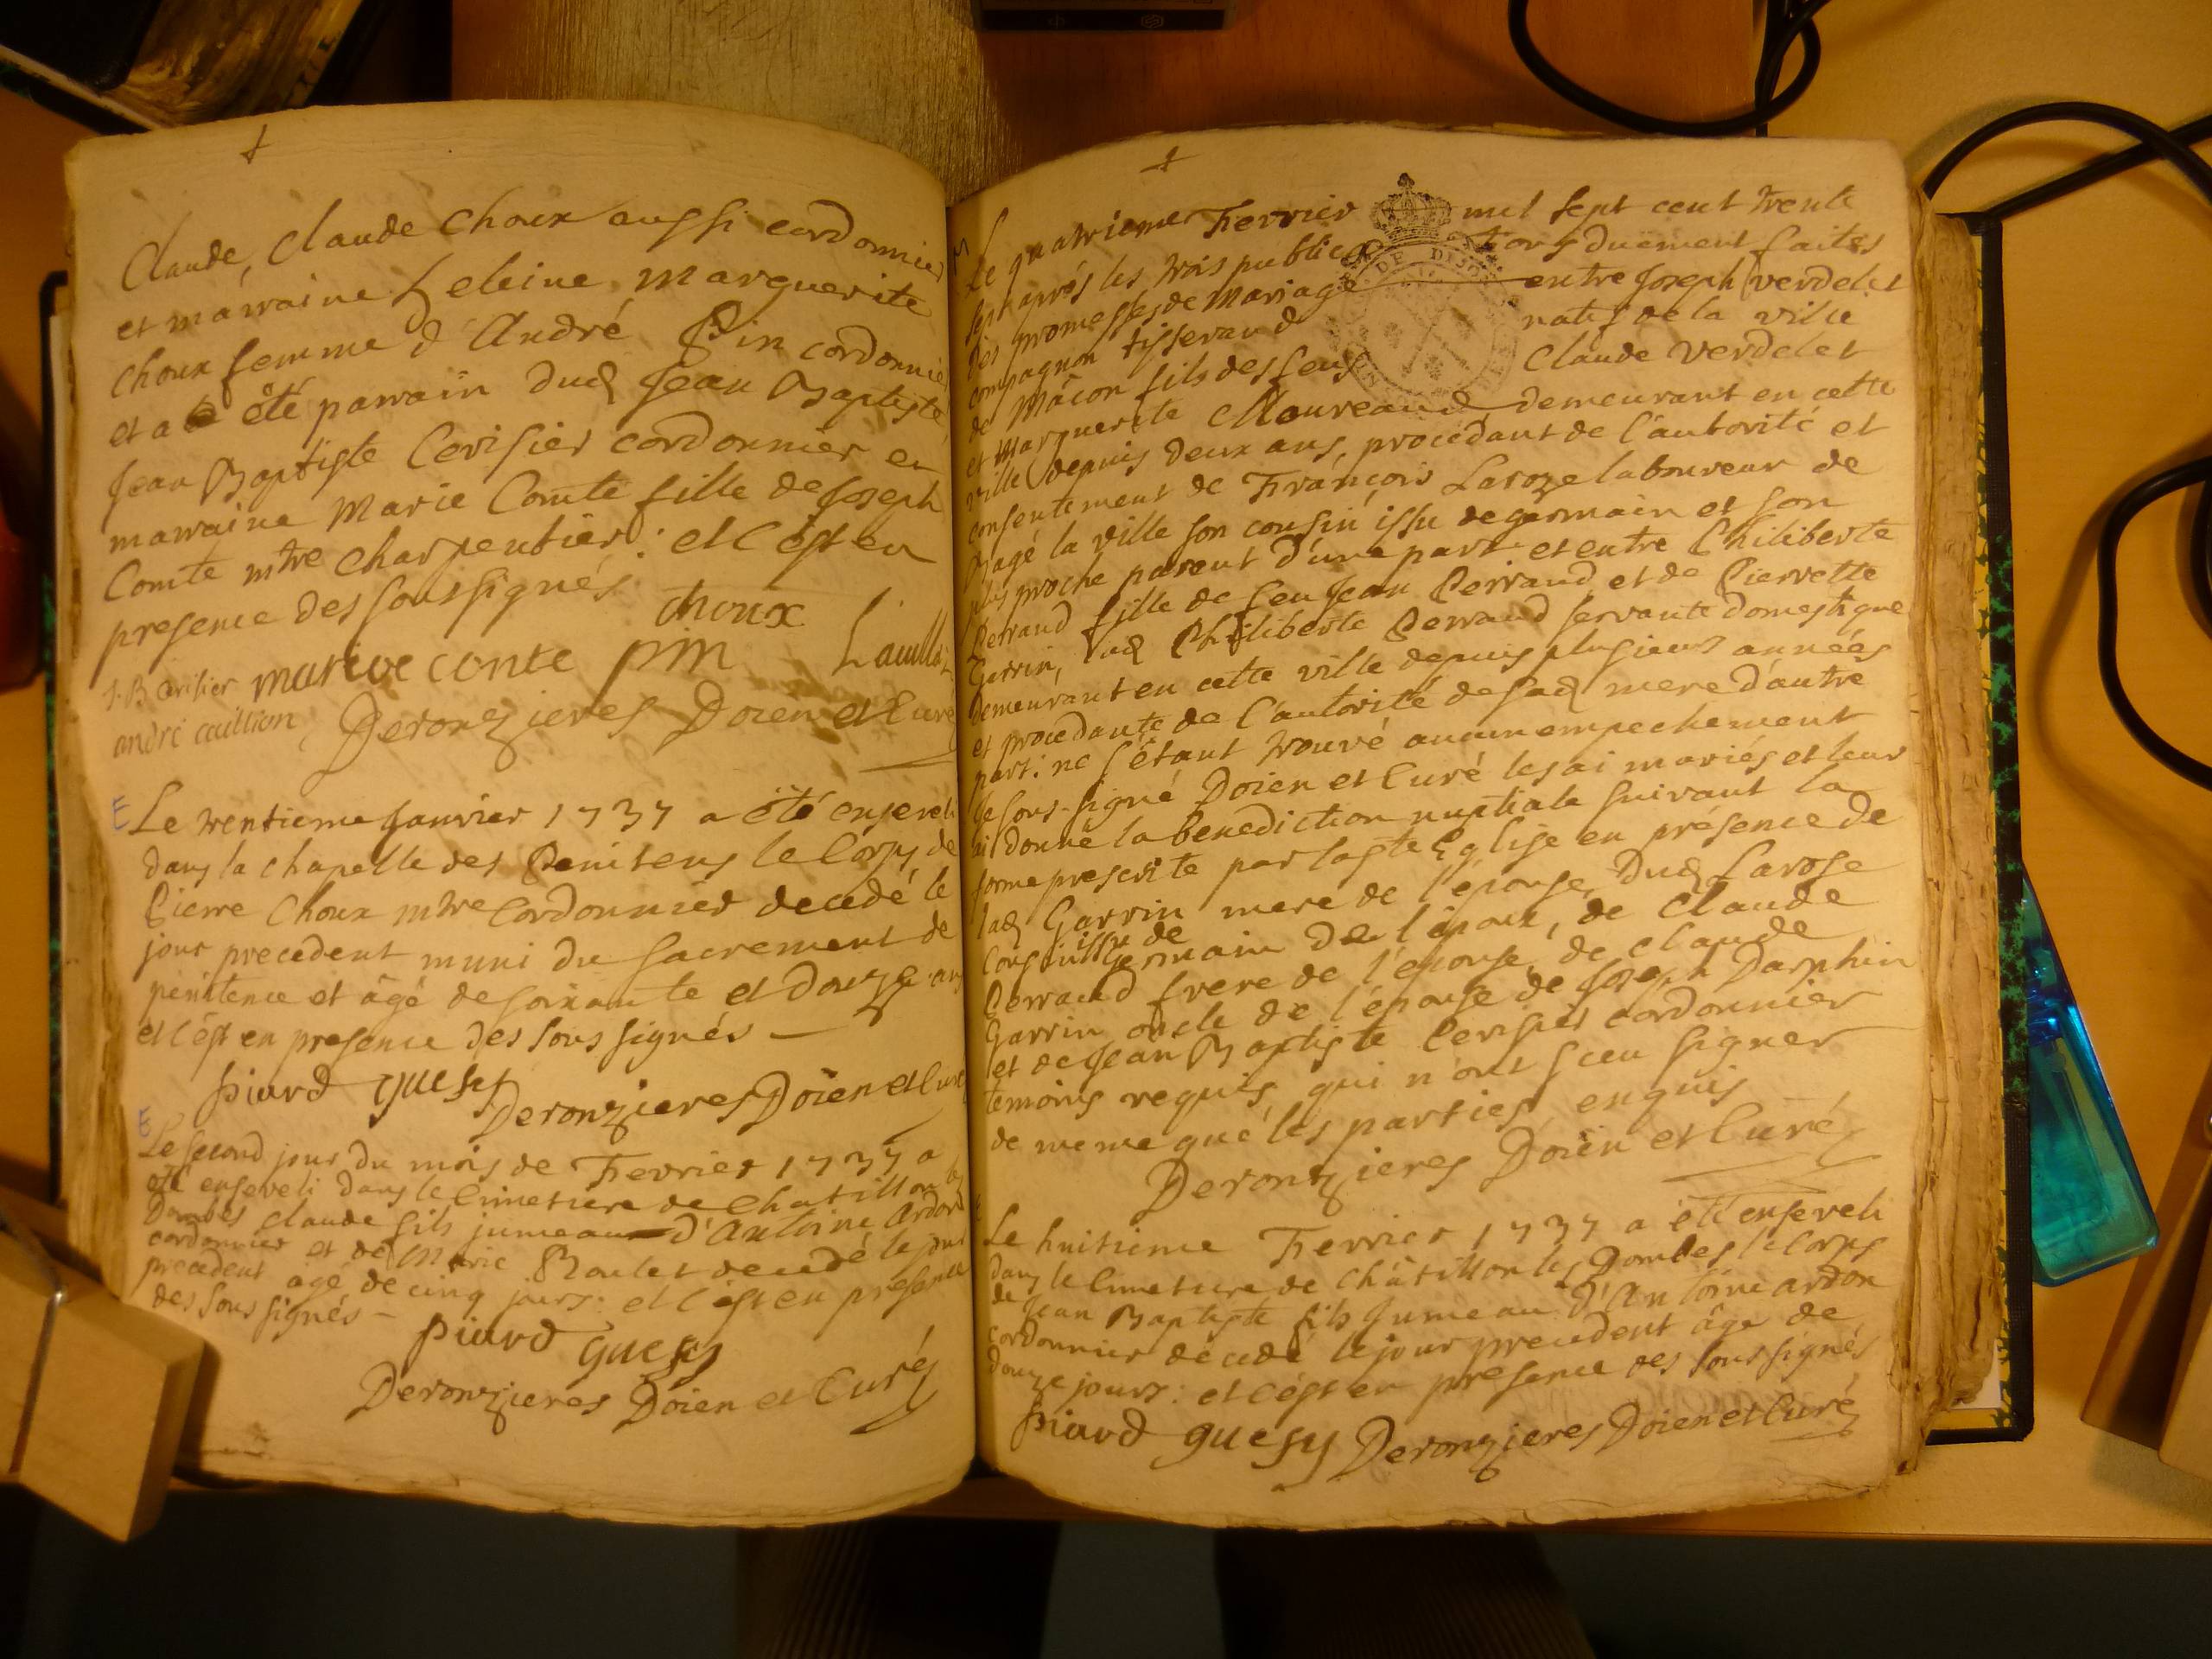 Claude, Claude Choux aussi cordonnier
et marraine heleine marguerite
choux femme d'André Pin cordonnier
et a été parrain dud Jean Baptiste,
Jean Baptiste Cerisier cordonnier et
marraine Marie Comte fille de Joseph
Comte mtre Charpentier: et c'est en
presence des soussignés
choux
J. B cerisier marive conte pin
andré caillion Deronzieres Doien et Curé
E Le trentieme Janvier 1737 a été enseveli
dans la chapelle des Penitens le Corps de
Pierre Choux mtre Cordonnier decedé le
jour precedent muni du sacrement de
penitence et âgé de soixante et douze ans
et c'est en presence des sous signés
piard guesy
Deronzieres Doien et Curé
E Le second jour du mois de Fevrier 1737 a
été enseveli dans le Cimetiere de Chatillon les
Dombes Claude fils jumeau d'Antoine Ardon
cordonnier et de Marie Roulet decedé le jour
precedent agé de cinq jours: et c'est en presence
des sous signés
piard guesy
Deronzieres Doien et Curé
M
Le quatrieme Fevrier mil sept cent trente
sept aprés les trois publica tions duement faites
des promesses de Mariage entre Joseph Verdelet
compagnon tisserand natif de la ville
de Mâcon fils des feus Claude Verdelet
et Marguerite Moureaud demeurant en cette
ville depuis deux ans, procedant de l'autorité et
consentement de François Laroze laboureur de
Bagé la ville son cousin issu de germain et son
plus proche parent d'une part et entre Philiberte
Perraud fille de feu Jean Perraud et de Pierrette
Garrin, lad Philiberte Perraud servante domestique
demeurant en cette ville depuis plusieurs années
et procedante de l'autorité de sad mere d'autre
part: ne s'étant trouvé aucun empechement
Je sous-signé Doien et Curé les ai mariés et leur
ai donné la benediction nuptiale suivant la
forme prescrite par la ste Eglise en présence de
lad Garrin mere de l'épouse, dud Larose
Cousin issu de germain de l'époux, de Claude
Perraud frere de l'épouse, de claude
Garrin oncle de l'épouse de Joseph Darphin
et de Jean Baptiste Cerisier cordonnier
temoins requis, qui n'ont sceu signer
de meme que les parties, enquis
Deronzieres Doien et Curé
Le huitieme Fevrier 1737 a été enseveli
dans le Cimetiere de Châtillon les Dombes le Corps
de Jean Baptiste fils Jumeau d'Antoine ardon
cordonnier decedé le jour precedent âgé de
douze jours: et c'est en presence des sous signés
piard guesy Deronzieres Doien et Curé